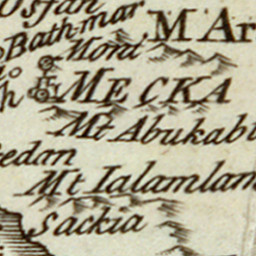 Osfan
Bath-mar
M Ar
Mont
MECKA
Mt Abukabi
edan
Mt Ialamlam
Sackia